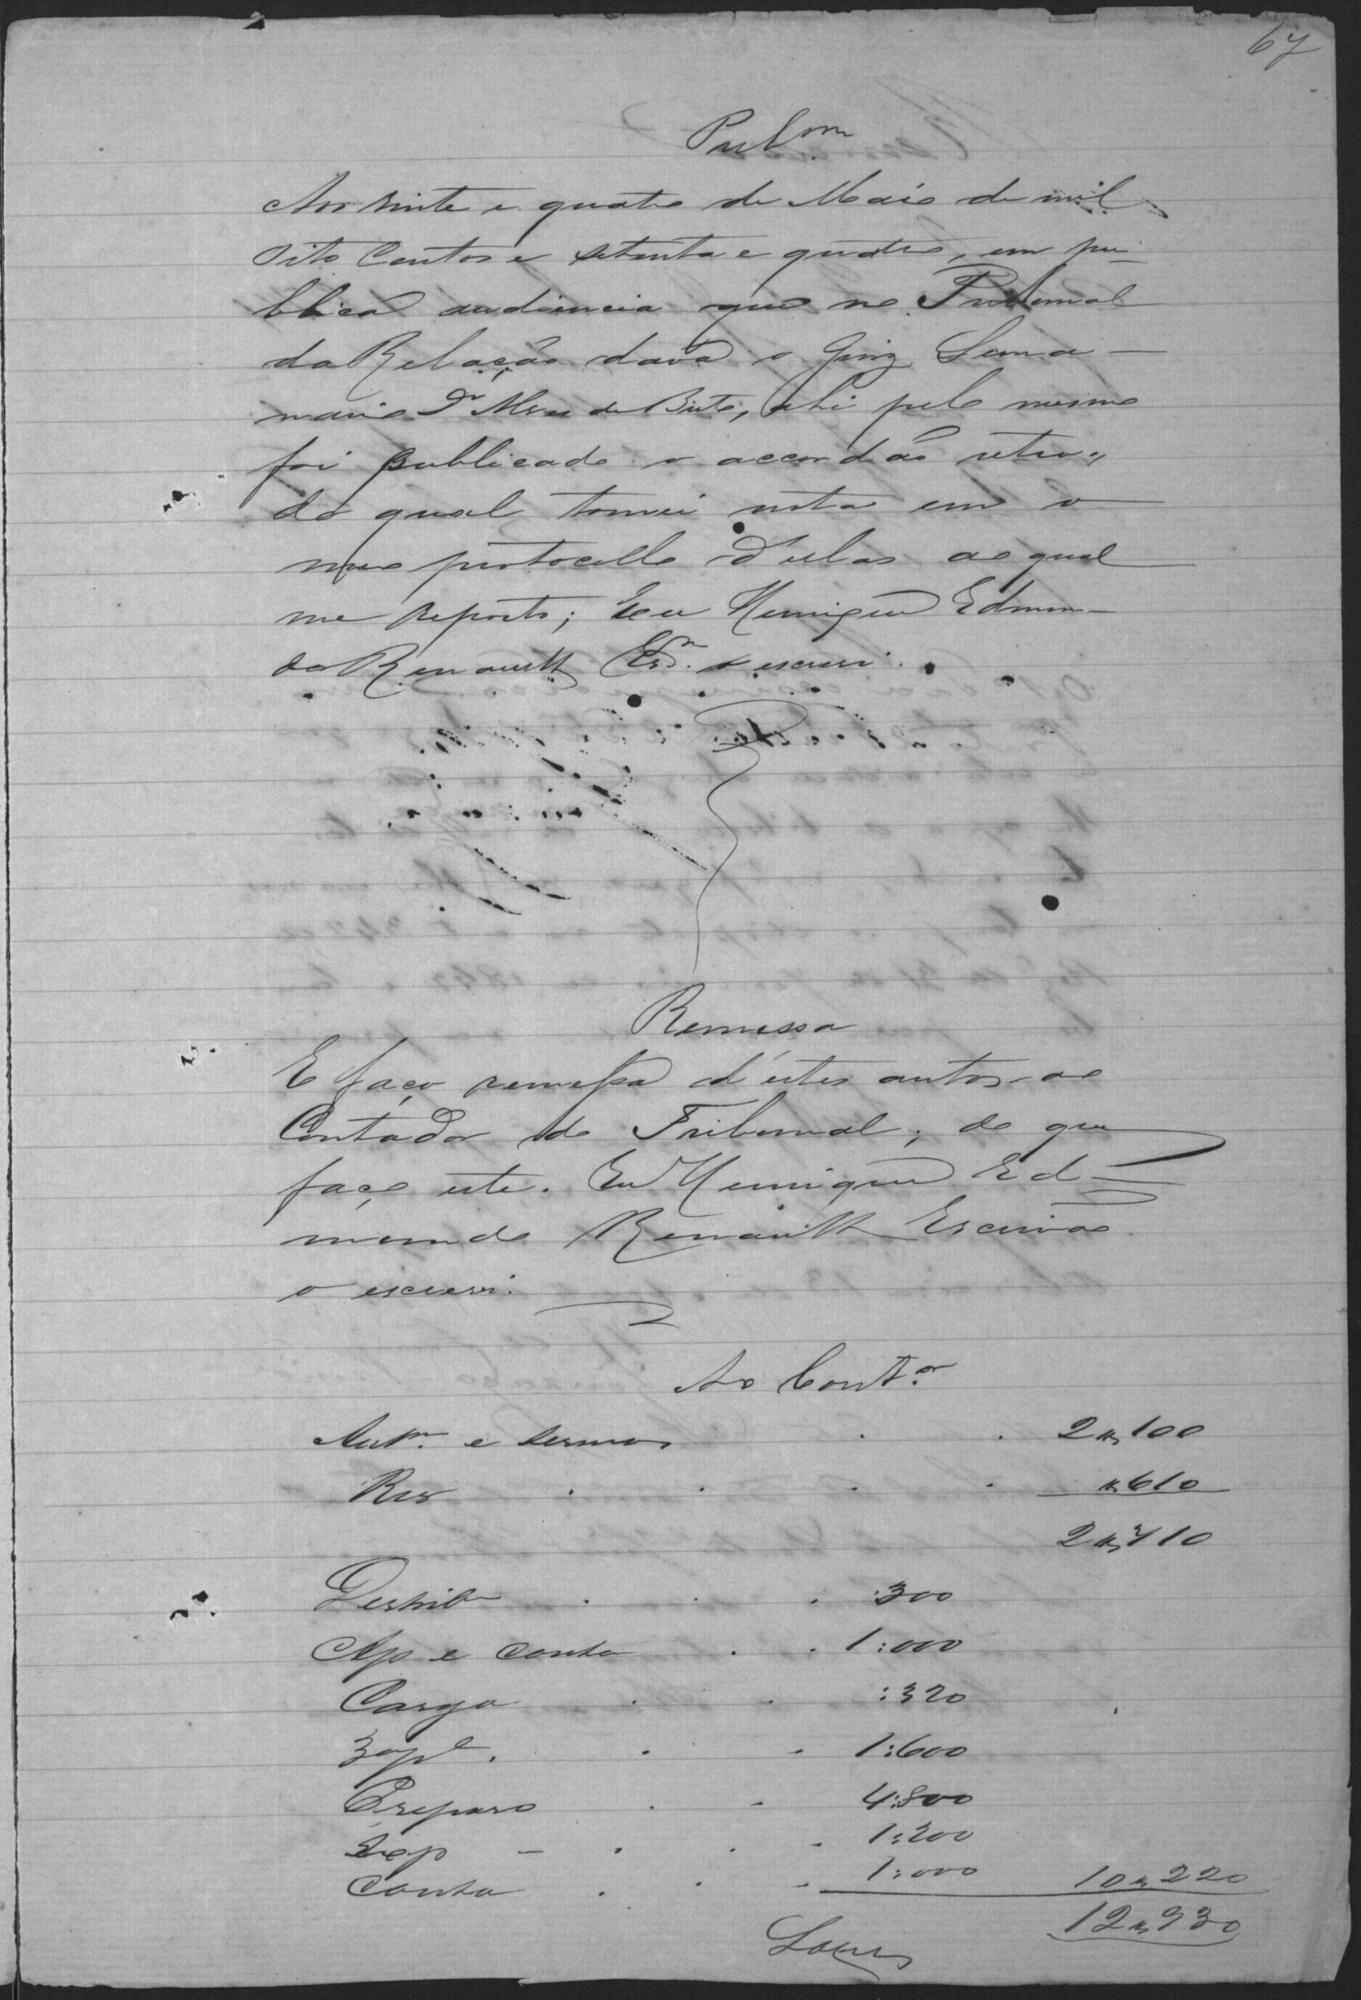 67
Publ.am
Aos vinte e quatro de Maio de mil
oito Centos e setenta e quatro, em pu-
blica audiencia que no Tribunal
da Relação dava o Juiz Sema-
nario Dr de Brito, ahi pelo mesmo
foi publicado o accordão retro,
do qual tomei nota em o
meu protocollo d'ellas ao qual
me reporto; Eu Henrique Edmun-
do Renault Esm. o escrevi.
Remessa
E faço remessa d'estes autos ao
Contador do Tribunal, de que
faço este. Eu Henrique Ed-
mundo Renault Escrivão
o escrevi.
Ao Cont.or
Aut.m e termos . . 2$100
Rez . . . . $610
2$710
Distrib . . . :300
Ap e conta . . 1:000
Carga . . :320
. . 1:600
Preparo . . 4:800
. . . 1:200
Conta . . . 1:000 10$220
12$930